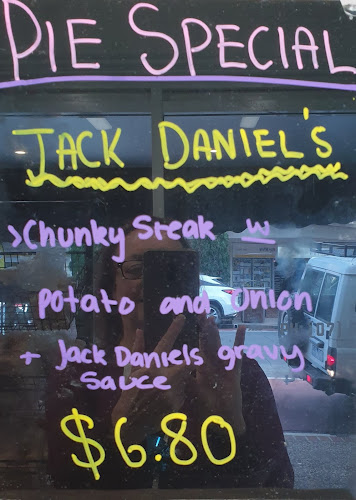 PIE SPECIAL
JACK DANIEL'S
>Chunky Steak w
potato and onion
+ Jack Daniels gravy
sauce
$6.80